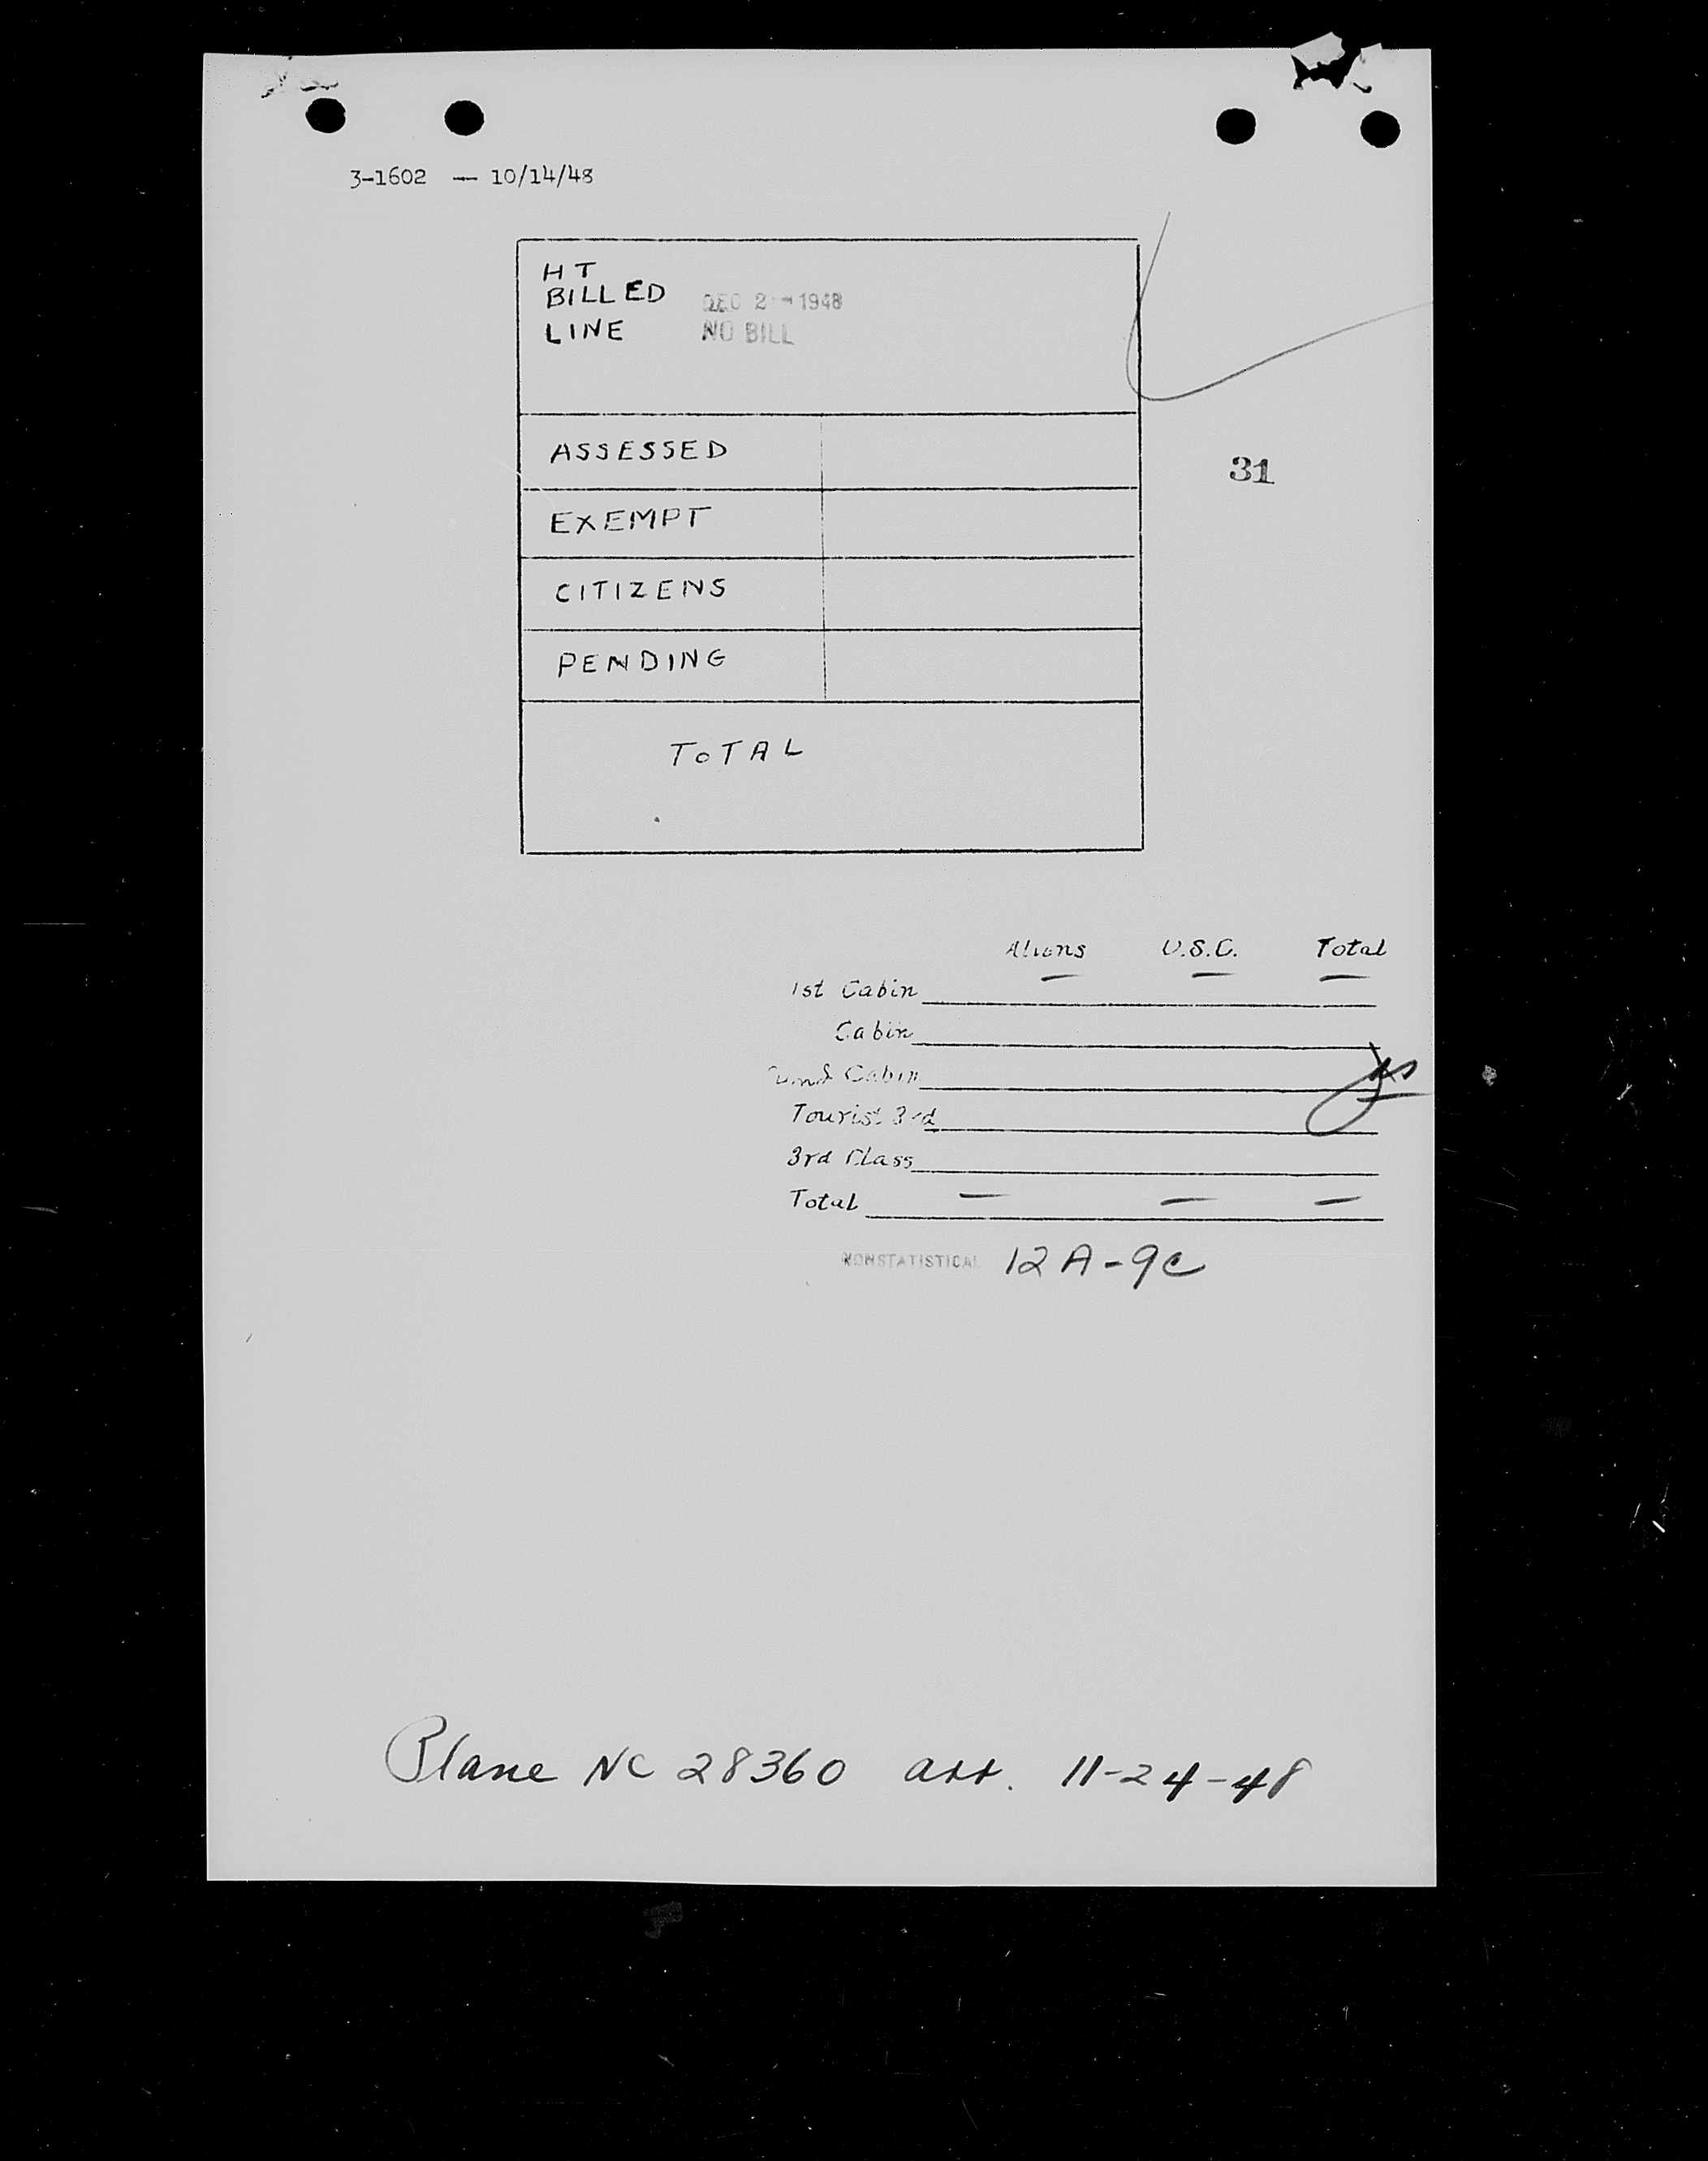 3-1602 — 10/14/48
HT
BILLED DEC 2 - 1948
LINE NO BILL
ASSESSED
31
EXEMPT
CITIZENS
PENDING
TOTAL
Aliens U.S.C. Total
1st Cabin — — —
Cabin
Cabin
Tourist 3rd
3rd Class
Total — — —
NONSTATISTICAL 12 A-9C
Plane NC 28360 arr. 11-24-48